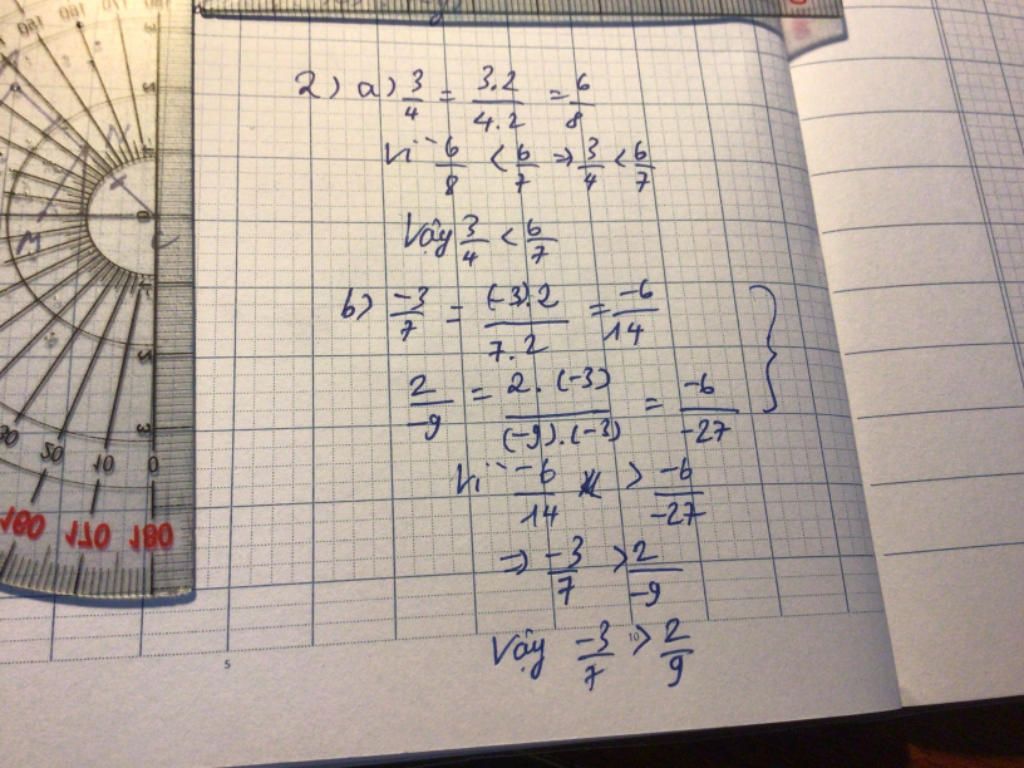 2) a) 3/4 = 3.2/4.2 = 6/8
Vì 6/8 < 6/7 ⇒ 3/4 < 6/7
Vậy 3/4 < 6/7
b) -3/7 = (-3).2/7.2 = -6/14 }
2/-9 = 2.(-3)/(-9).(-3) = -6/-27
Vì -6/14 > -6/-27
⇒ -3/7 > 2/-9
Vậy -3/7 > 2/9
5
10
M
30 20 10 0
160 170 180